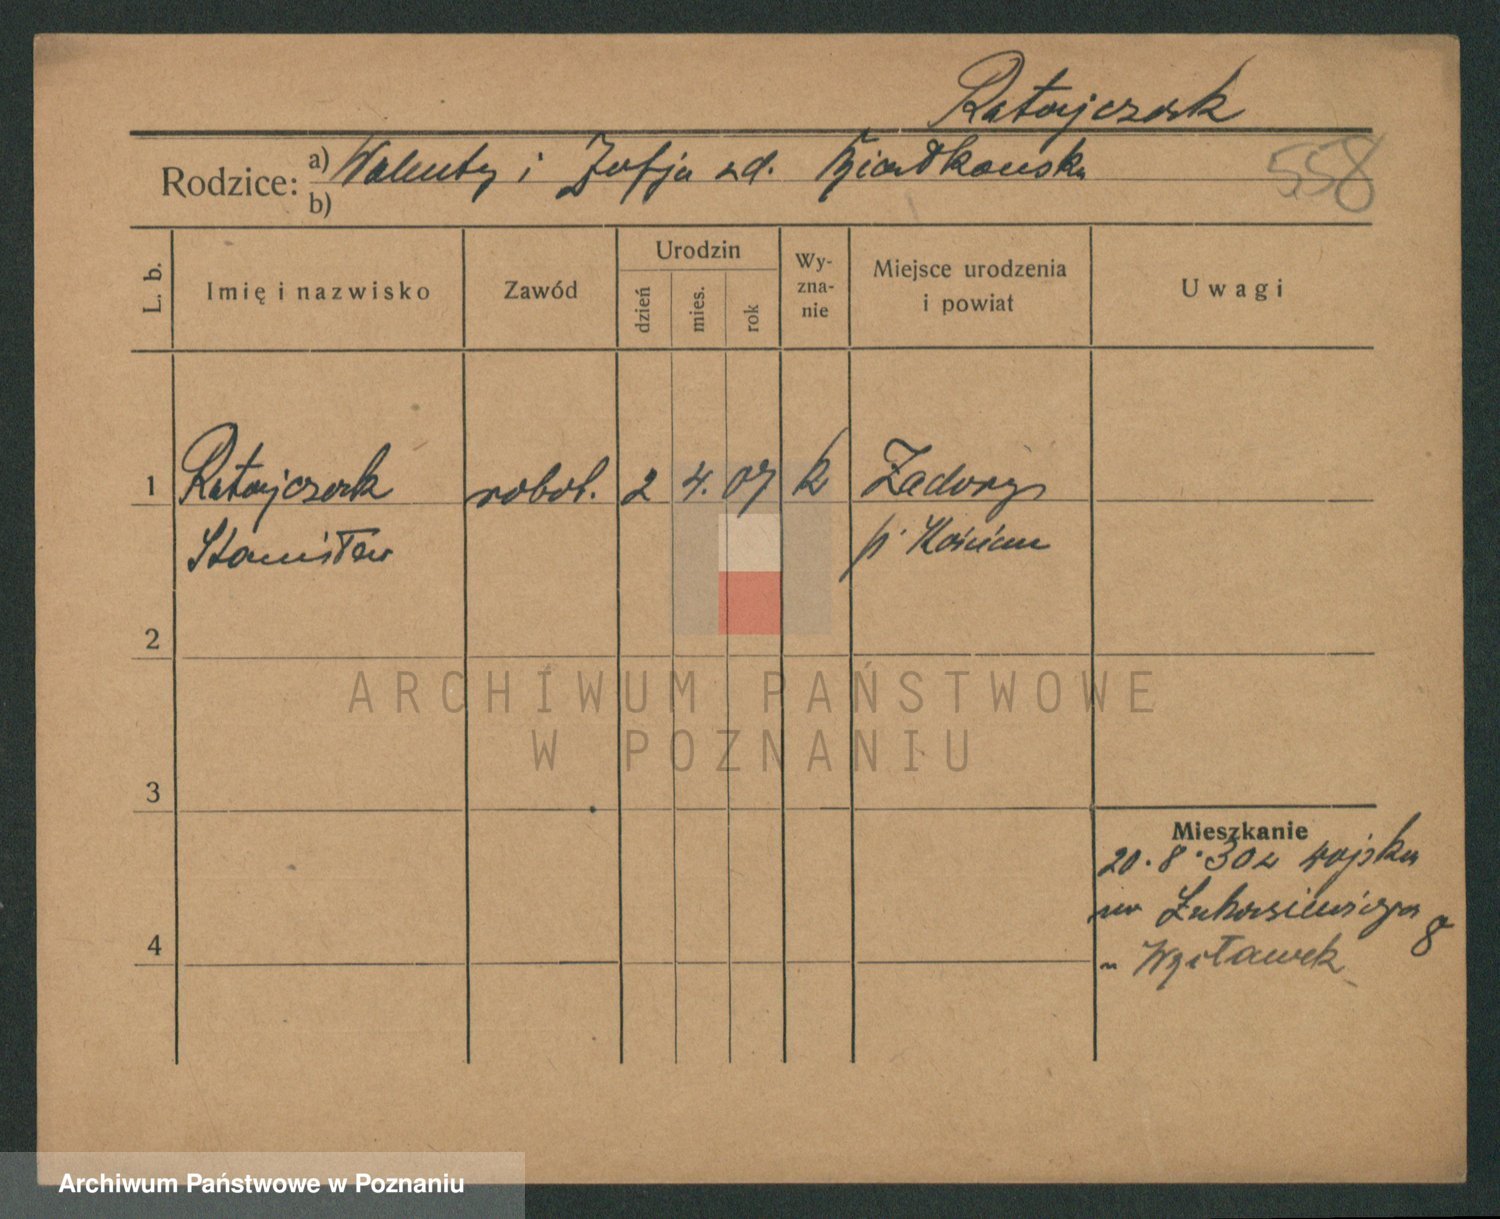 Ratajczak
Rodzice: a) Walenty i Zofja zd.
b)
558
L. b.
Imię i nazwisko
Zawód
Urodzin
dzień
mies.
rok
Wy-
zna-
nie
Miejsce urodzenia
i powiat
Uwagi
1 Ratajczak robot. 2 4. 07 k Zadory
Stanisław p. Kościan
2
3
4
Mieszkanie
20. 8. 30 z wojska
na 8
ARCHIWUM PAŃSTWOWE
W POZNANIU
Archiwum Państwowe w Poznaniu